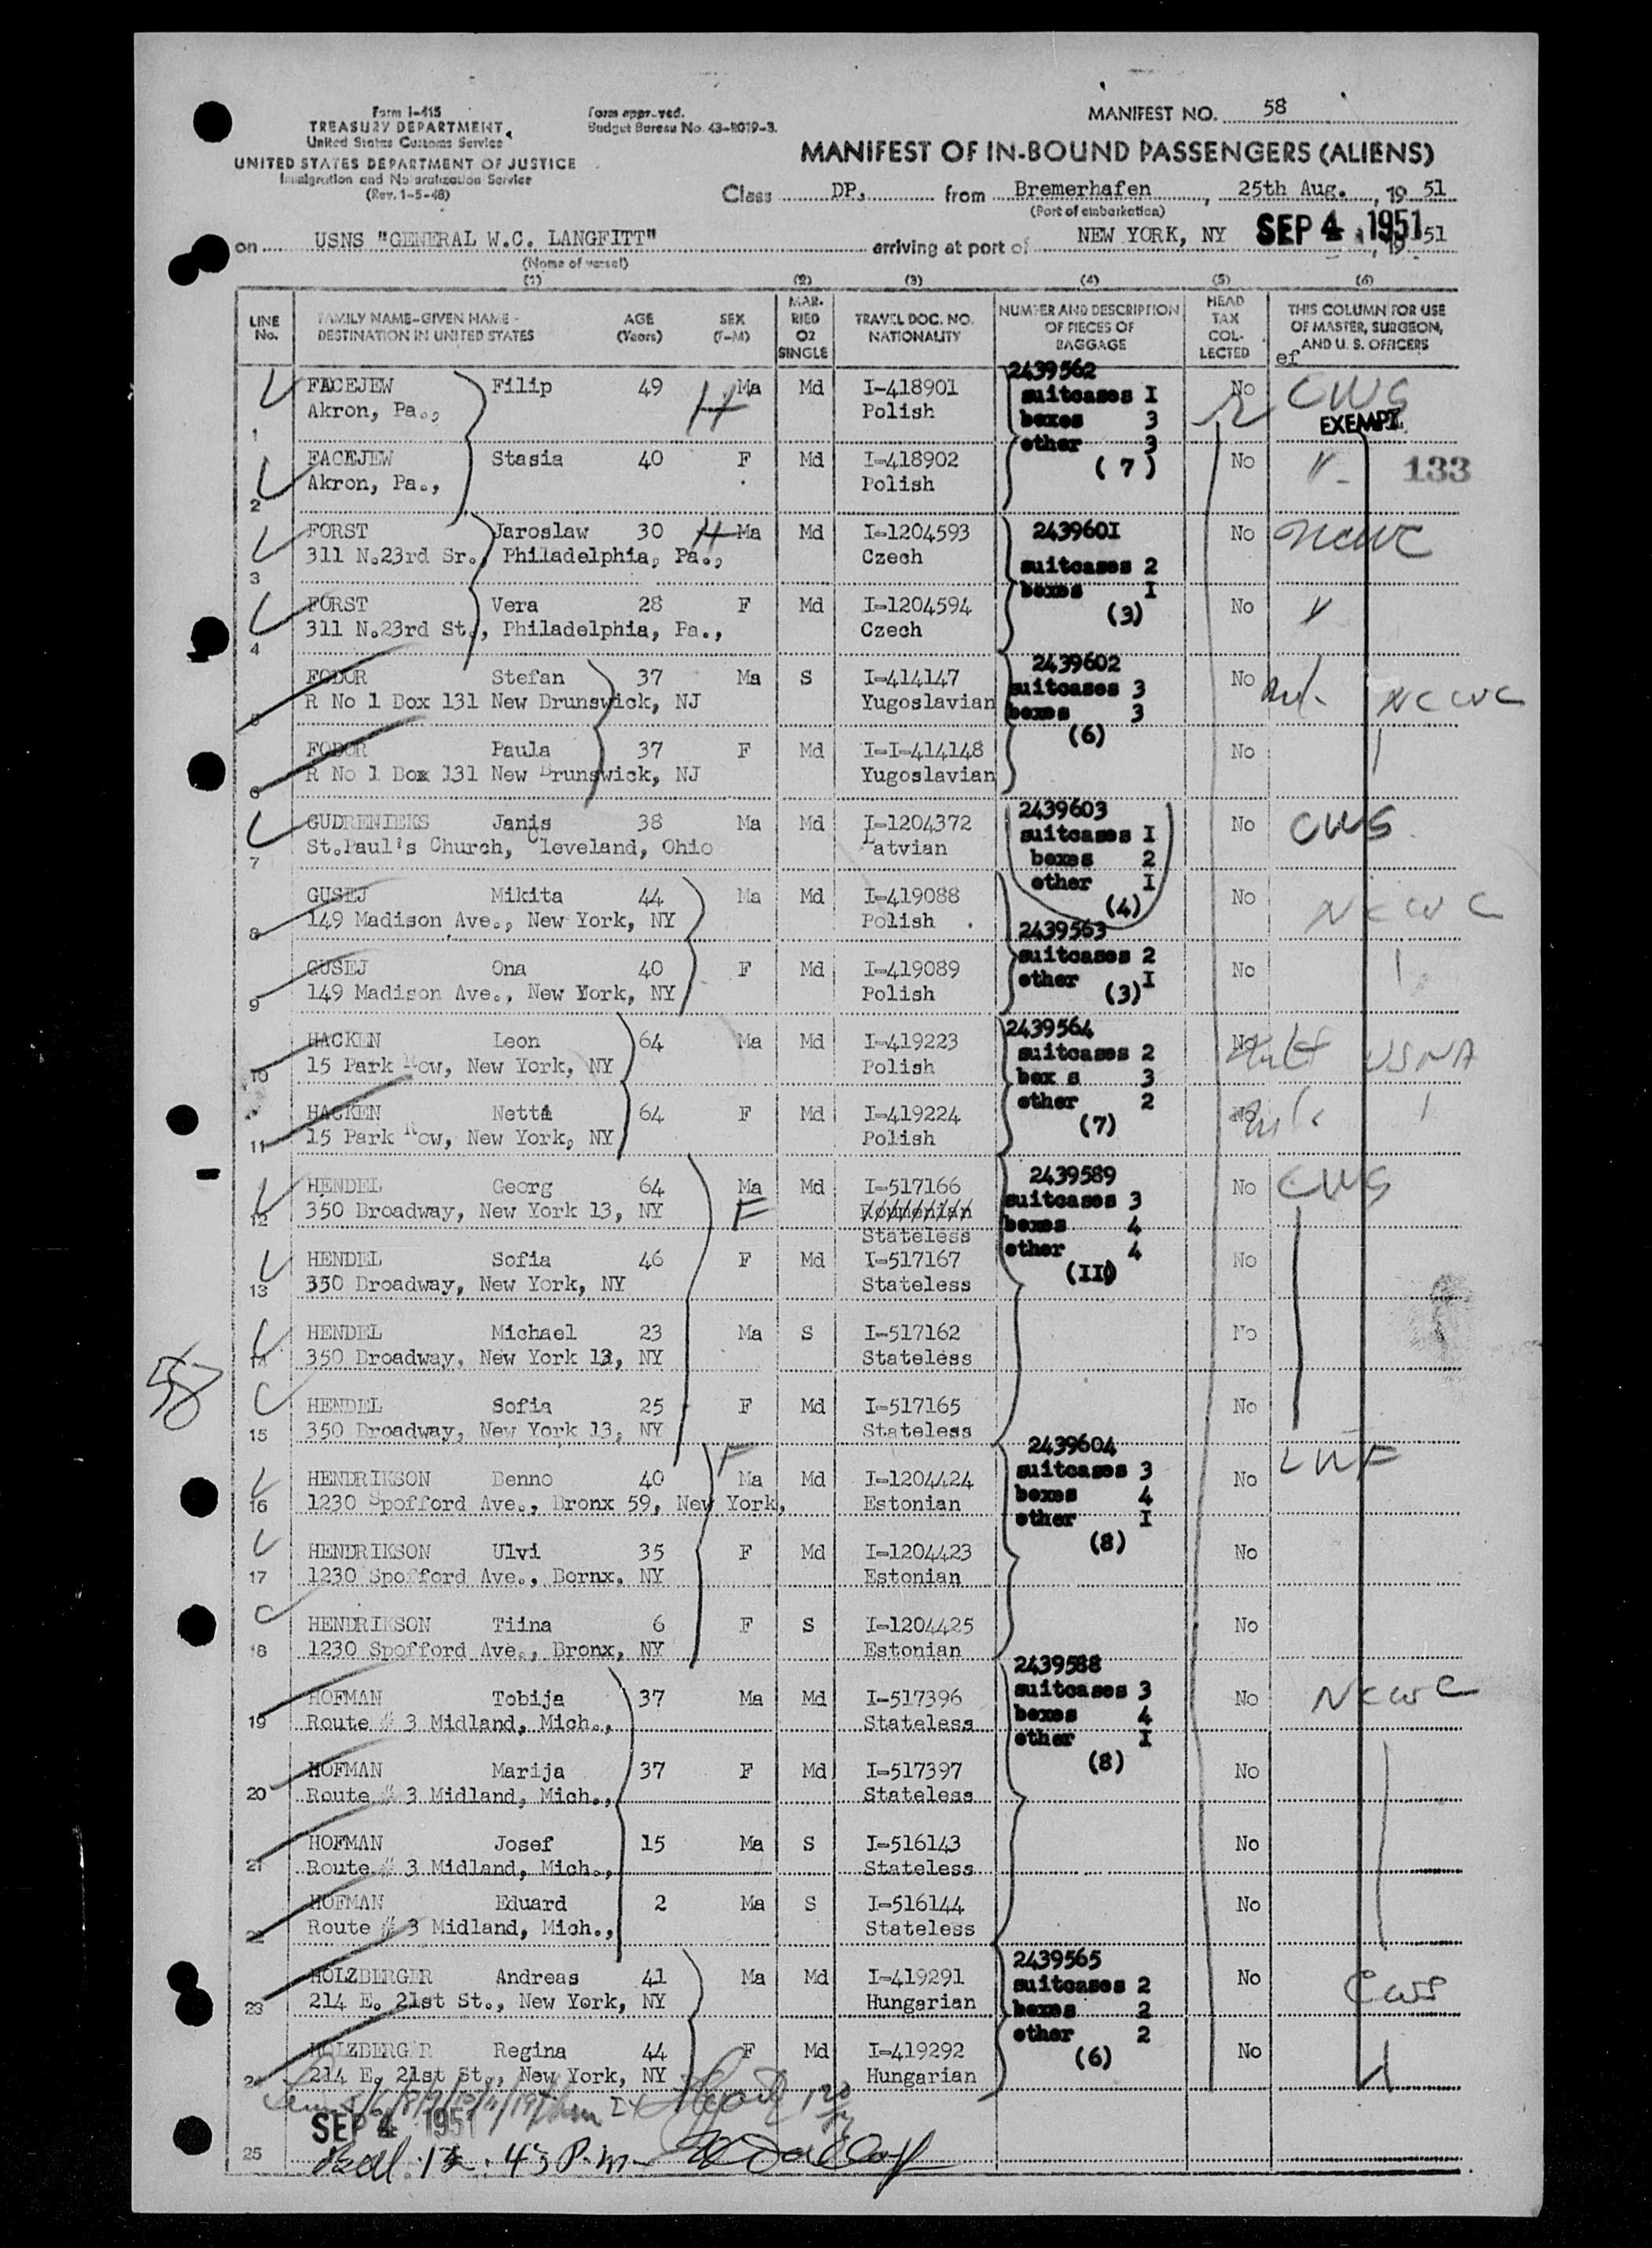 Form I-415
TREASURY DEPARTMENT
United States Customs Service
UNITED STATES DEPARTMENT OF JUSTICE
Immigration and Naturalization Service
(Rev. 1-5-48)
Form approved.
Budget Bureau No. 43-R019-3.
MANIFEST NO. 58
MANIFEST OF IN-BOUND PASSENGERS (ALIENS)
Class DP. from Bremerhafen, 25th Aug., 19 51
(Port of embarkation)
on USNS "GENERAL W.C. LANGFITT" arriving at port of NEW YORK, NY SEP 4 1951, 19 51
(Name of vessel)
(1) (2) (3) (4) (5) (6)
LINE No. FAMILY NAME-GIVEN NAME - DESTINATION IN UNITED STATES AGE (Years) SEX (F-M) MARRIED OR SINGLE TRAVEL DOC. NO. NATIONALITY NUMBER AND DESCRIPTION OF PIECES OF BAGGAGE HEAD TAX COLLECTED THIS COLUMN FOR USE OF MASTER, SURGEON, AND U. S. OFFICERS
ef
1 FACEJEW Filip 49 Ma Md I-418901 2439562 No CWS
Akron, Pa., H Polish suitcases I boxes 3 EXEMPT
2 FACEJEW Stasia 40 F Md I-418902 other 3 No 133
Akron, Pa., Polish (7)
3 FORST Jaroslaw 30 H Ma Md I-1204593 2439601 No NCWC
311 N.23rd Sr., Philadelphia, Pa., Czech suitcases 2 boxes I
4 FORST Vera 28 F Md I-1204594 (3) No
311 N.23rd St., Philadelphia, Pa., Czech
5 FODOR Stefan 37 Ma S I-414147 2439602 No NCWC
R No 1 Box 131 New Brunswick, NJ Yugoslavian suitcases 3 boxes 3
6 FODOR Paula 37 F Md I-I-414148 (6) No
R No 1 Box 131 New Brunswick, NJ Yugoslavian
7 GUDRENIEKS Janis 38 Ma Md I-1204372 2439603 No CWS
St.Paul's Church, Cleveland, Ohio Latvian suitcases I boxes 2 other I (4)
8 GUSEJ Mikita 44 Ma Md I-419088 No NCWC
149 Madison Ave., New York, NY Polish 2439563
9 GUSEJ Ona 40 F Md I-419089 suitcases 2 other I (3) No
149 Madison Ave., New York, NY Polish
10 HACKEN Leon 64 Ma Md I-419223 2439564 No USNA
15 Park Row, New York, NY Polish suitcases 2 box s 3
11 HACKEN Netta 64 F Md I-419224 other 2 No
15 Park Row, New York, NY Polish (7)
12 HENDEL Georg 64 Ma Md I-517166 2439589 No CWS
350 Broadway, New York 13, NY F Roumenian suitcases 3 boxes 4
Stateless
13 HENDEL Sofia 46 F Md I-517167 other 4 No
350 Broadway, New York, NY Stateless (II)
14 HENDEL Michael 23 Ma S I-517162 No
350 Broadway, New York 13, NY Stateless
58
15 HENDEL Sofia 25 F Md I-517165 No
350 Broadway, New York 13, NY Stateless
16 HENDRIKSON Benno 40 F Ma Md I-1204424 2439604 No LWF
1230 Spofford Ave., Bronx 59, New York, Estonian suitcases 3 boxes 4 other I
17 HENDRIKSON Ulvi 35 F Md I-1204423 (8) No
1230 Spofford Ave., Bornx. NY Estonian
18 HENDRIKSON Tiina 6 F S I-1204425 No
1230 Spofford Ave., Bronx, NY Estonian
19 HOFMAN Tobija 37 Ma Md I-517396 2439588 No NCWC
Route # 3 Midland, Mich., Stateless suitcases 3 boxes 4 other I
20 HOFMAN Marija 37 F Md I-517397 (8) No
Route # 3 Midland, Mich., Stateless
21 HOFMAN Josef 15 Ma S I-516143 No
Route # 3 Midland, Mich., Stateless
22 HOFMAN Eduard 2 Ma S I-516144 No
Route # 3 Midland, Mich., Stateless
23 HOLZBERGER Andreas 41 Ma Md I-419291 2439565 No CWS
214 E. 21st St., New York, NY Hungarian suitcases 2 boxes 2
24 HOLZBERGER Regina 44 F Md I-419292 other 2 No
214 E. 21st St., New York, NY Hungarian (6)
SEP 4 1951
25